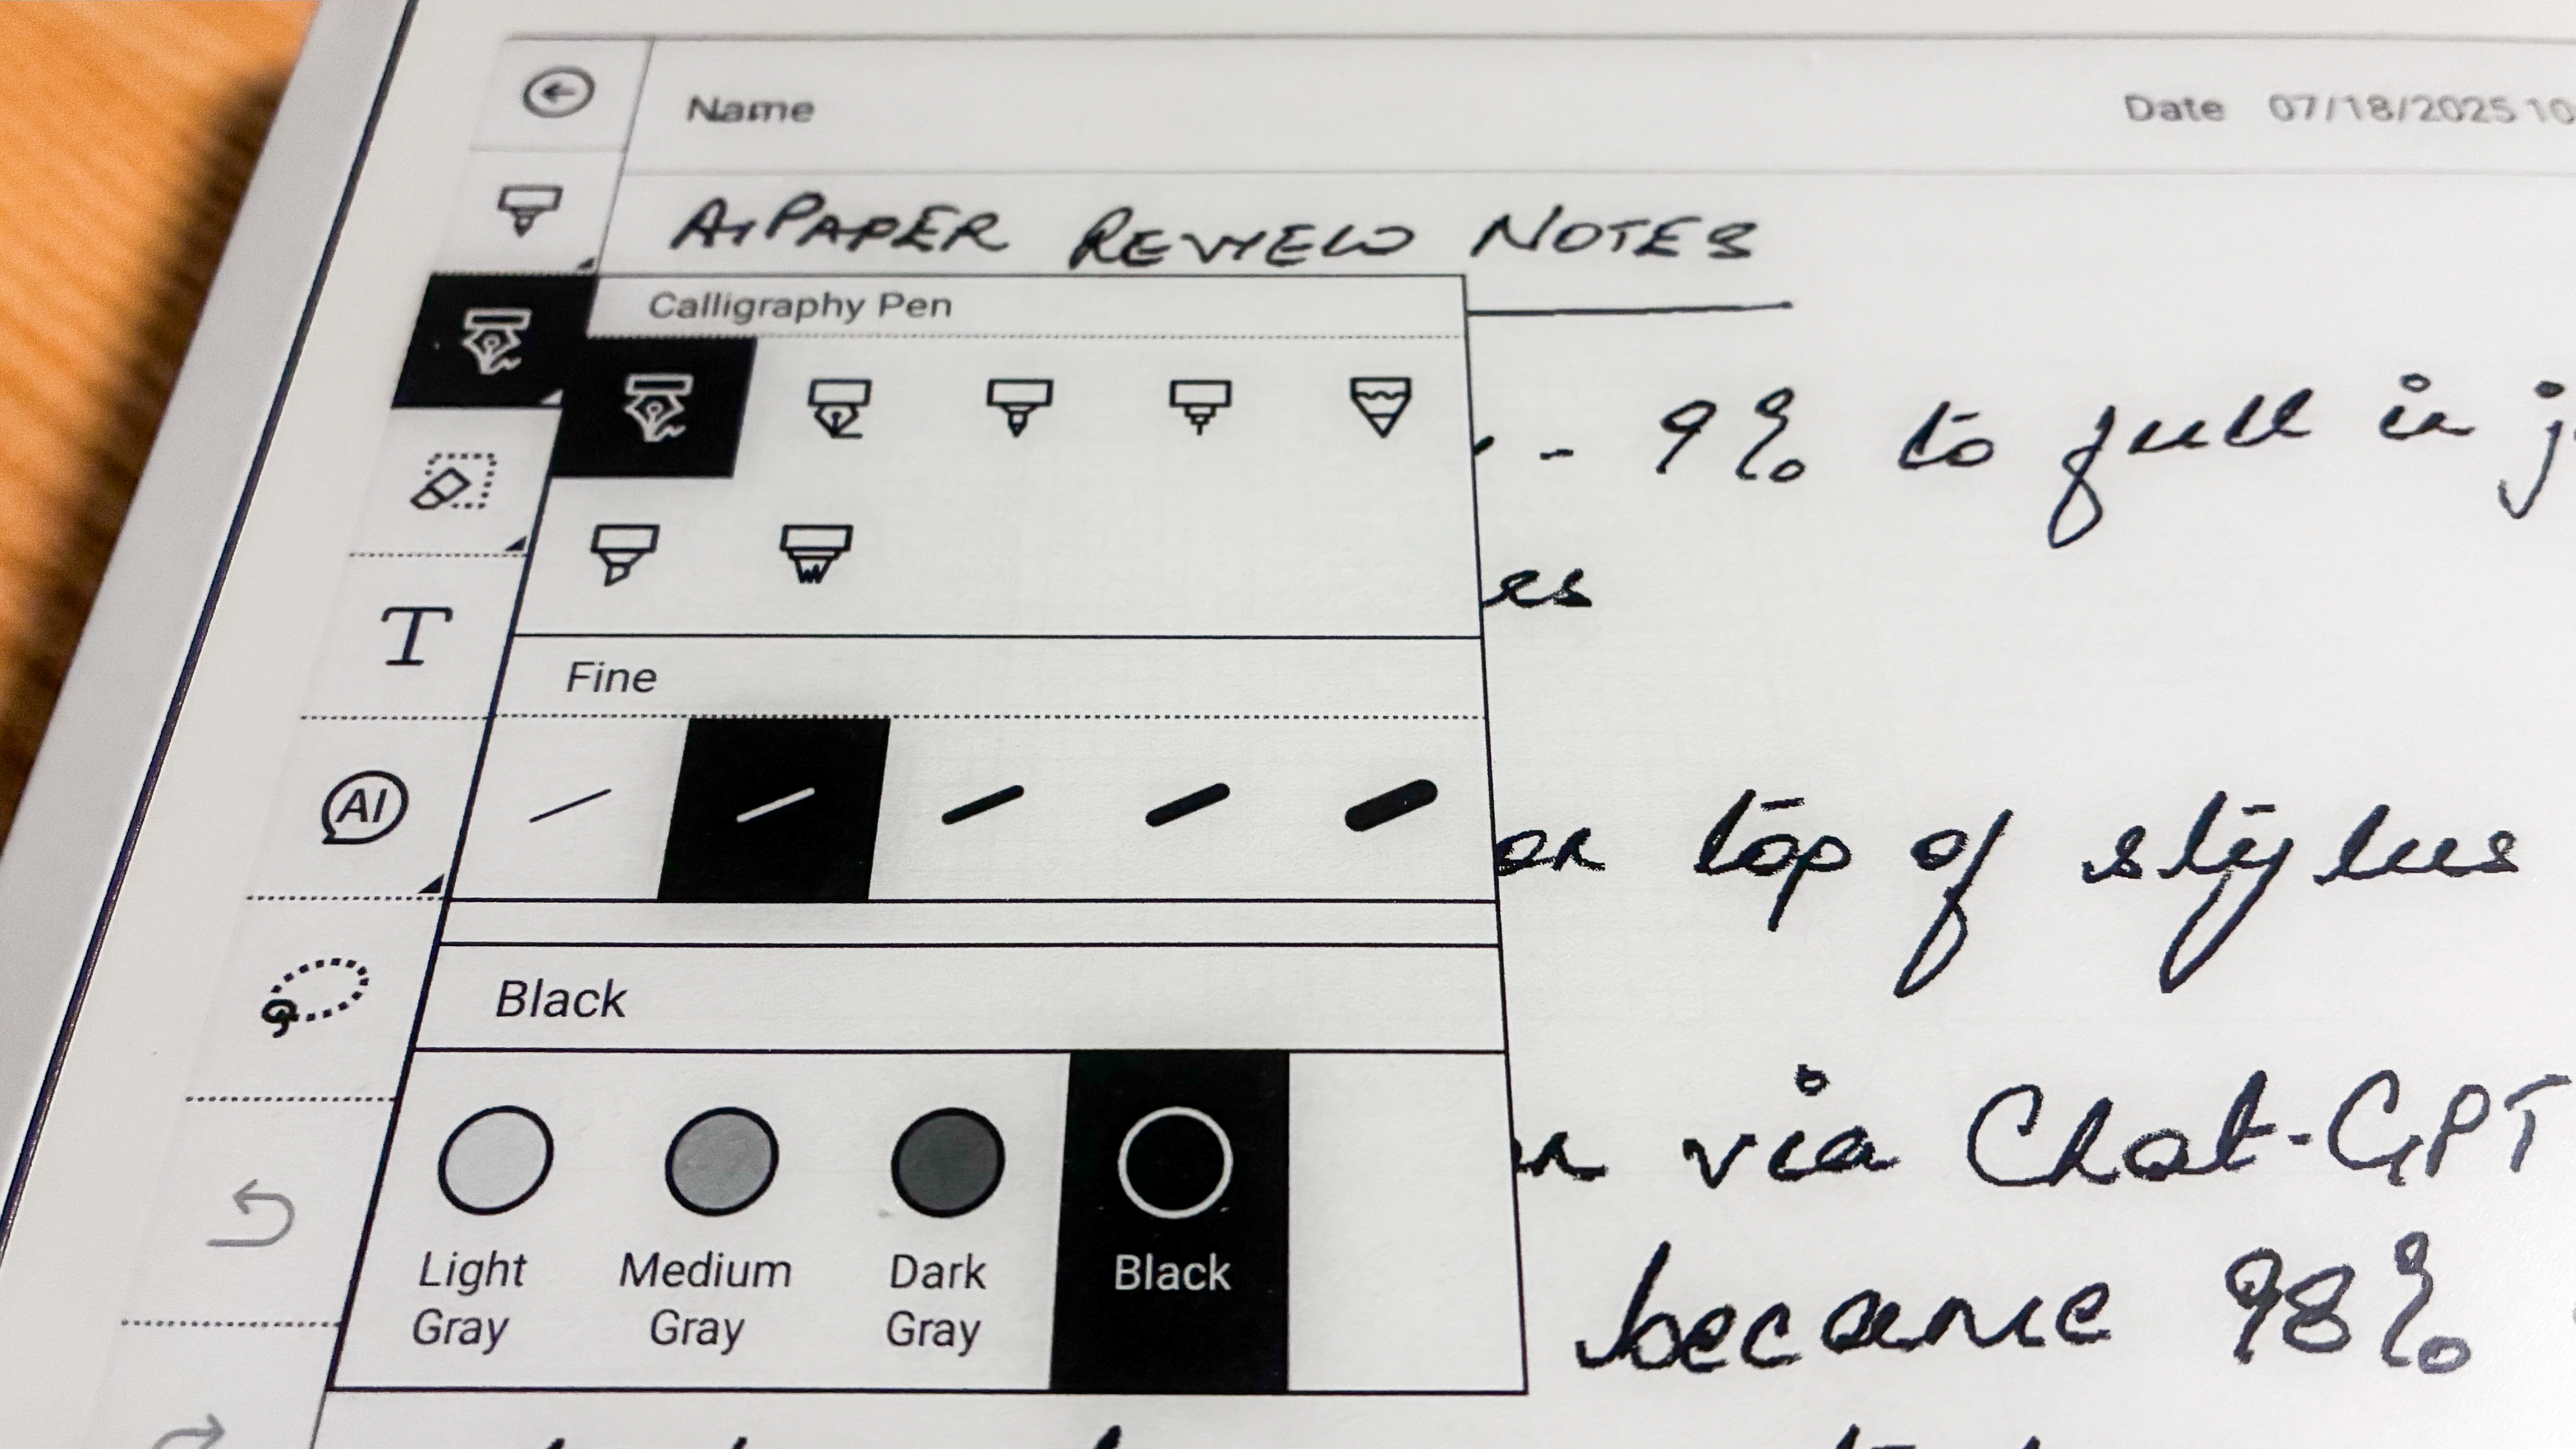 Name Date 07/18/2025 10
AIPAPER REVIEW NOTES
Calligraphy Pen
- 9% to full in
es
Fine
T
AI
on top of stylus
Black
via Chat-GPT
became 98%
Light Gray Medium Gray Dark Gray Black